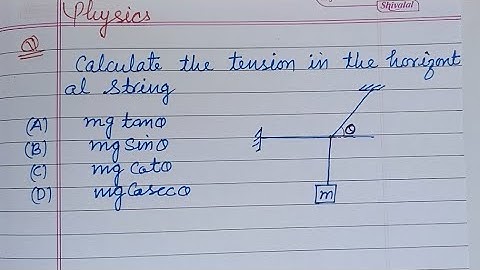 Shivalal
Physics
1 Calculate the tension in the horizont
al string
(A) mg tanθ
(B) mg sinθ
(C) mg cotθ
(D) mg Cosecθ
θ
m